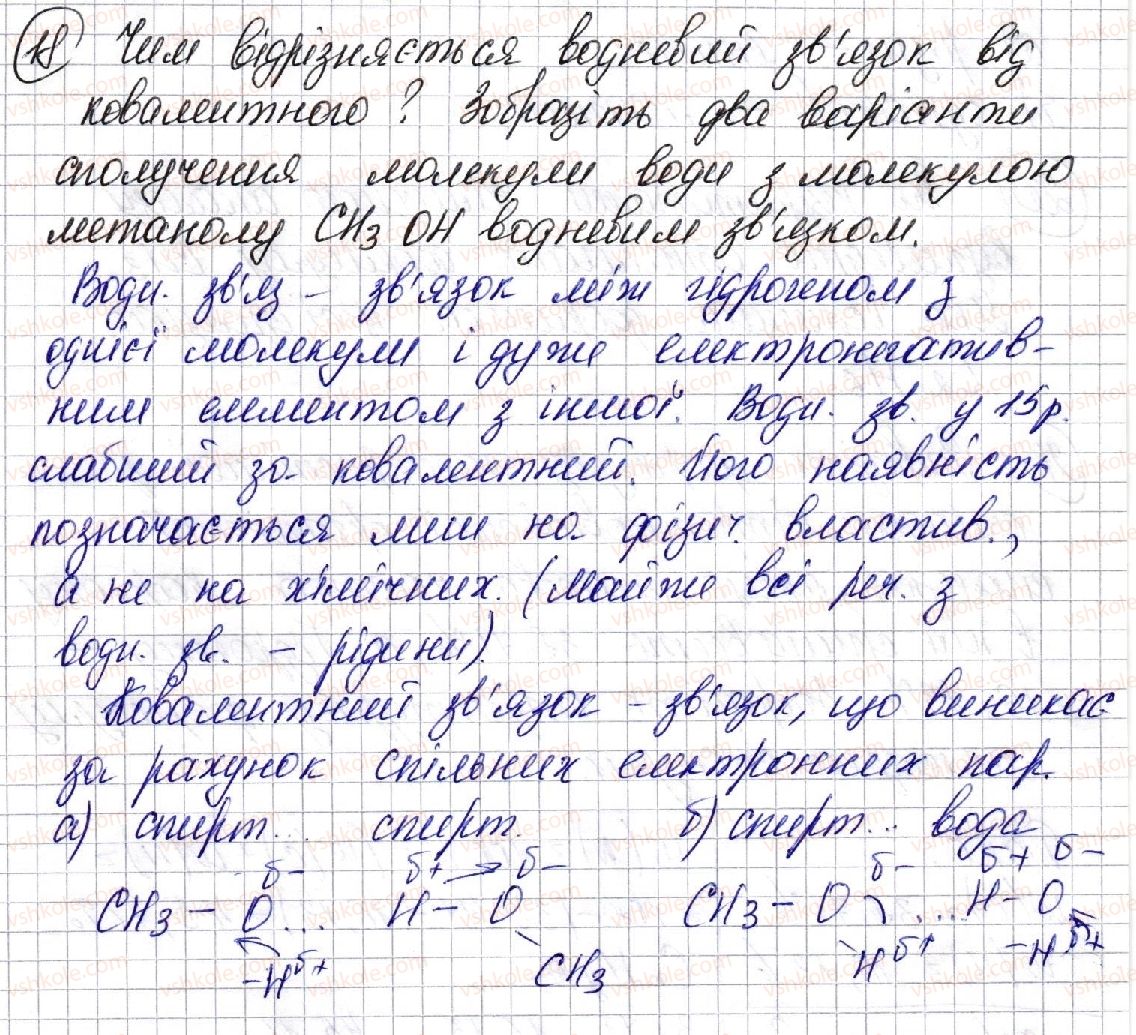 18 Чим відрізняється водневий зв'язок від
ковалентного? Зобразіть два варіанти
сполучення молекули води з молекулою
метанолу CH3OH водневим зв'язком.
Водн. зв'яз – зв'язок між гідрогеном з
однієї молекули і дуже електронегатив-
ним елементом з іншої. Водн. зв. у 15 р.
слабший за ковалентний. Його наявність
позначається лиш на фізич. властив.,
а не на хімічних. (Майже всі реч. з
водн. зв. – рідини).
Ковалентний зв'язок – зв'язок, що виникає
за рахунок спільних електронних пар.
а) спирт... спирт. б) спирт... вода
δ– δ+ δ– δ– δ+ δ–
CH3 – O ... H – O CH3 – O ... H – O
–H δ+ CH3 H δ+ –H δ+
vshkole.com